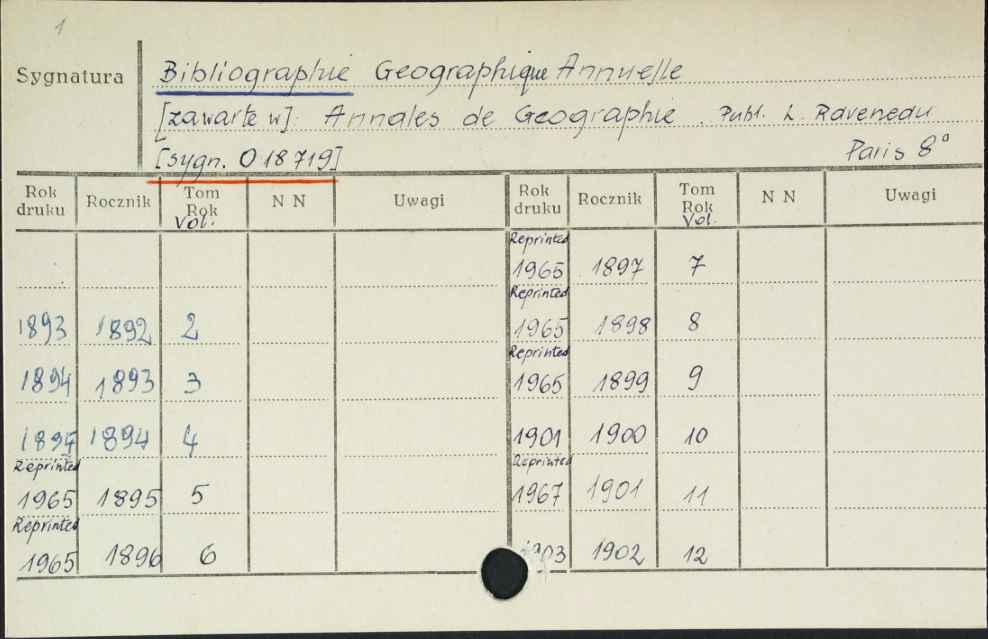 1
Sygnatura
Bibliographie Geographique Annuelle
[zawarte w]: Annales de Geographie. Publ. L. Raveneau
[sygn. O 18719] Paris 8°
Rok druku Rocznik Tom Rok Vol. N N Uwagi Rok druku Rocznik Tom Rok Vol. N N Uwagi
Reprinted 1965 1897 7
1893 1892 2 Reprinted 1965 1898 8
1894 1893 3 Reprinted 1965 1899 9
1894 4 1901 1900 10
Reprinted 1965 1895 5 Reprinted 1967 1901 11
Reprinted 1965 1896 6 1902 12